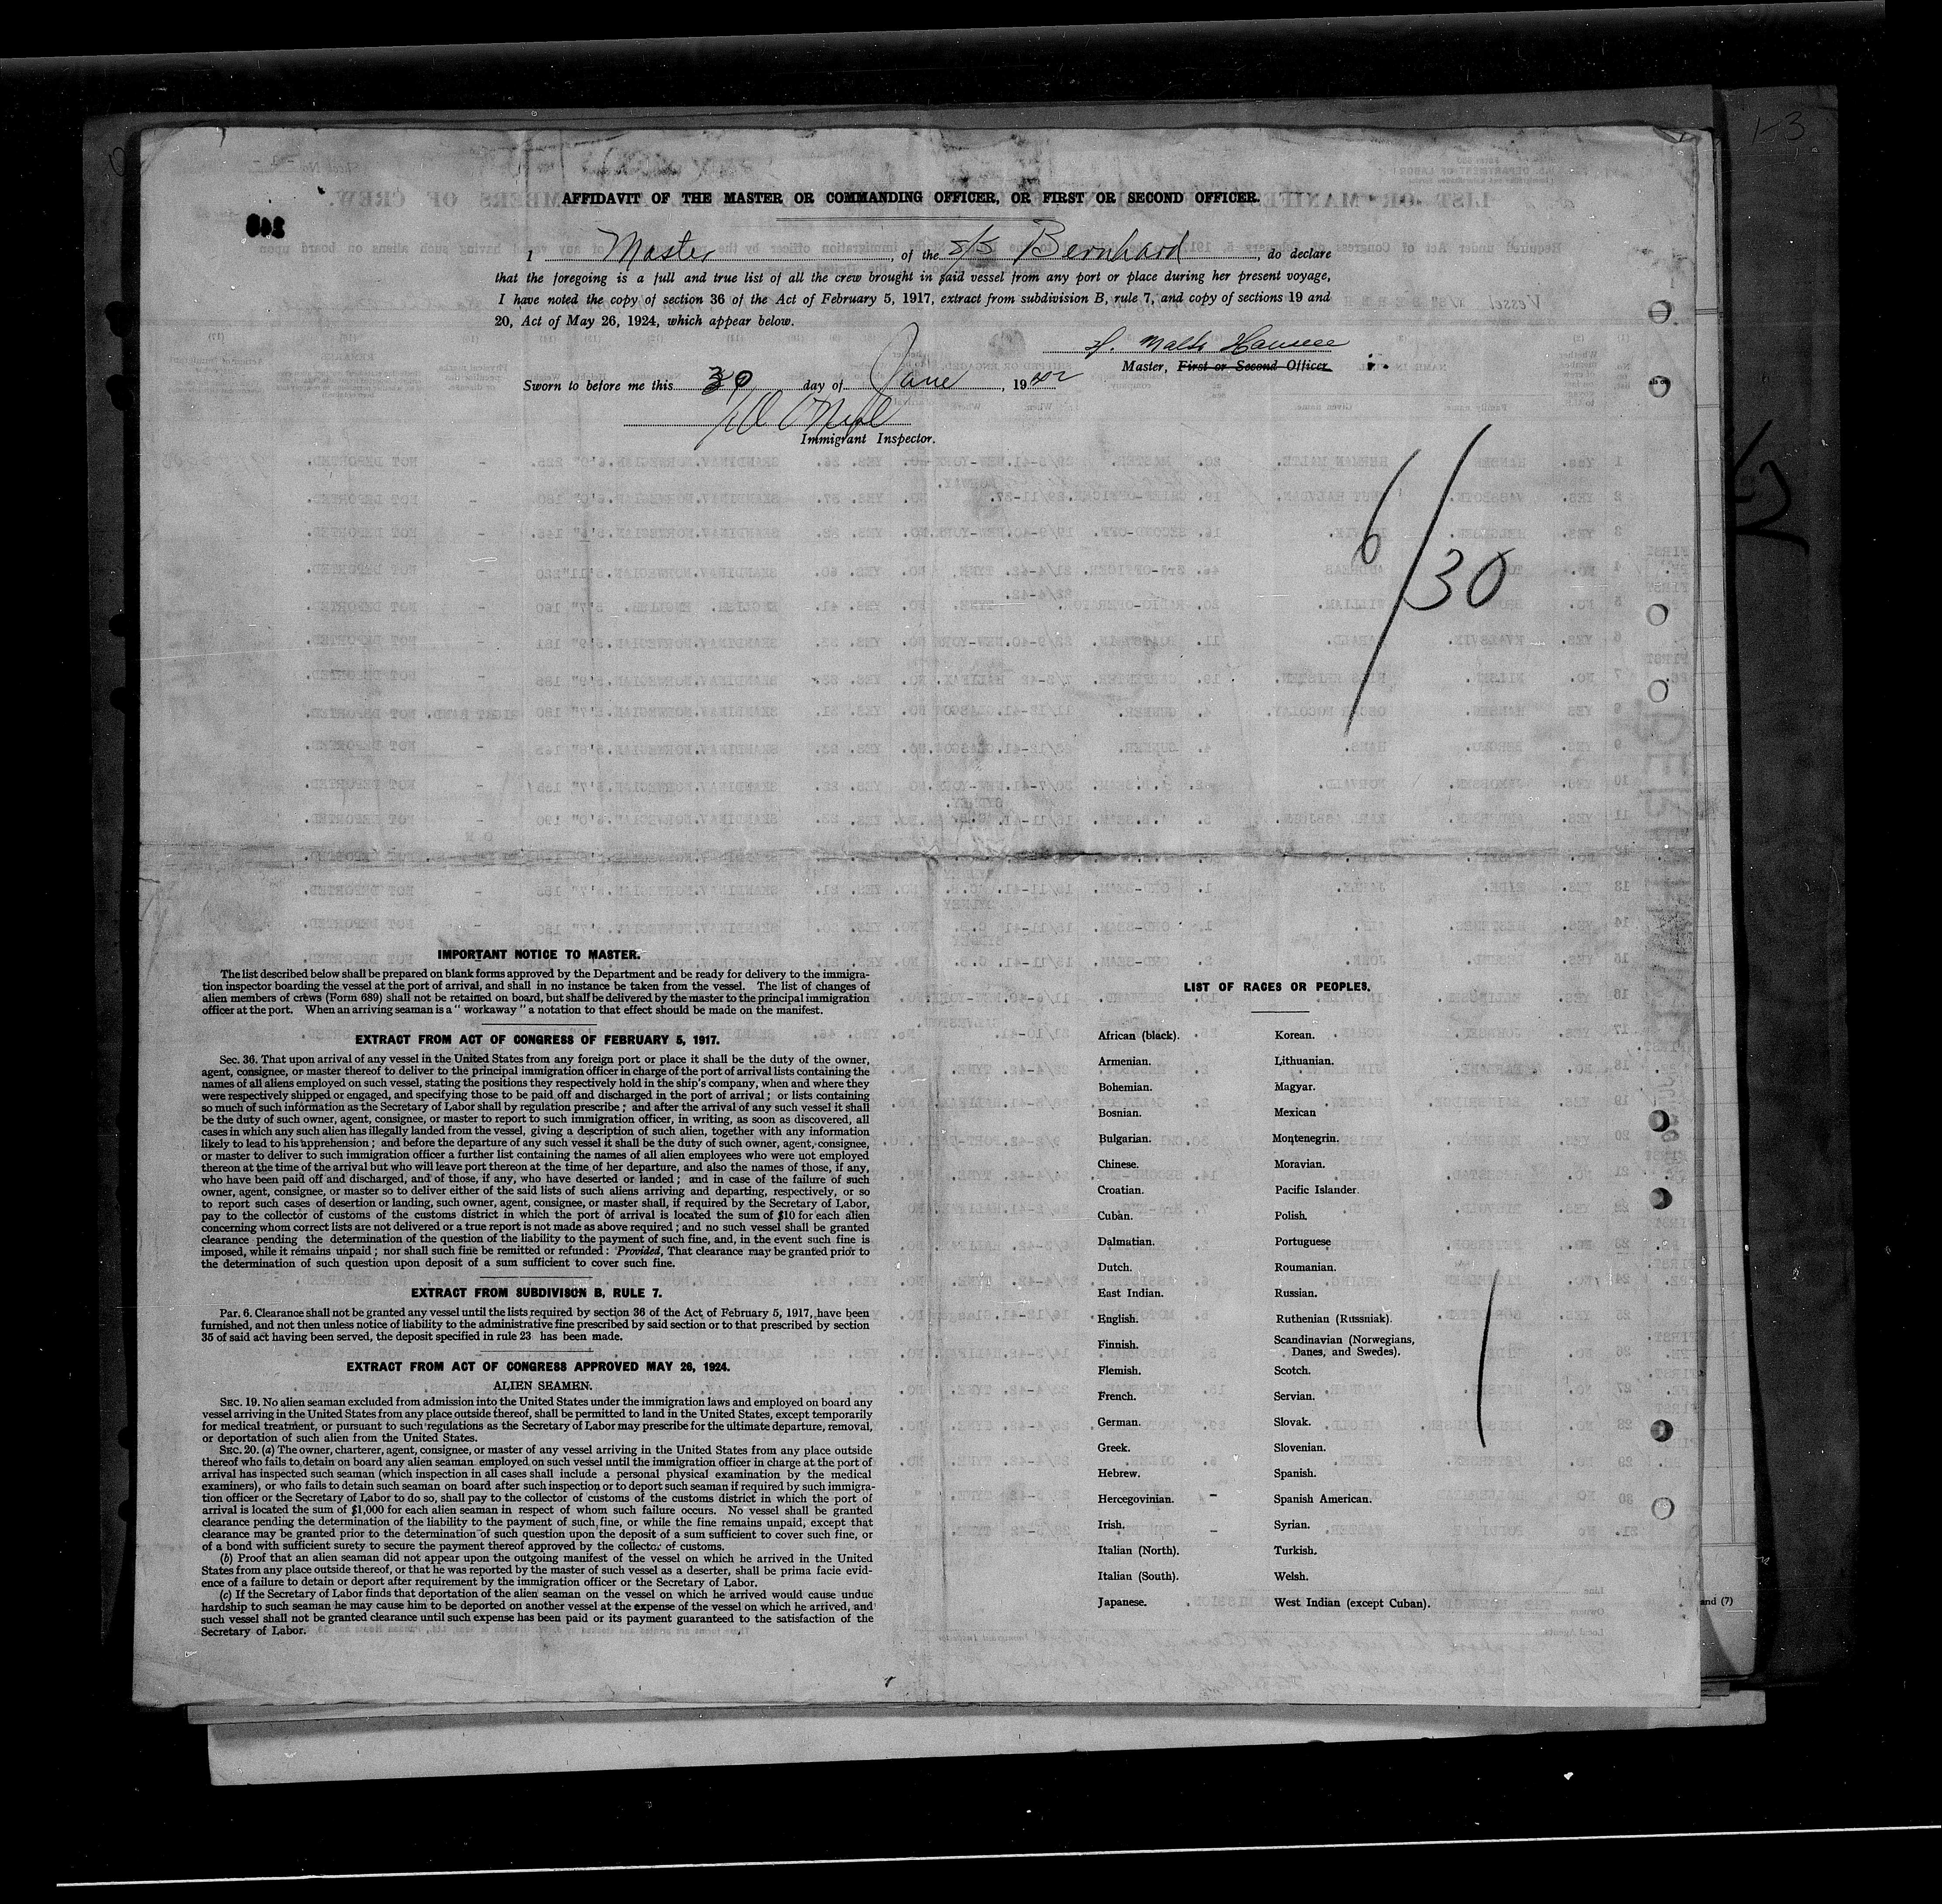 AFFIDAVIT OF THE MASTER OR COMMANDING OFFICER, OR FIRST OR SECOND OFFICER.
I Master, of the S/S Bernhard, do declare
that the foregoing is a full and true list of all the crew brought in said vessel from any port or place during her present voyage,
I have noted the copy of section 36 of the Act of February 5, 1917, extract from subdivision B, rule 7, and copy of sections 19 and
20, Act of May 26, 1924, which appear below.
H. Malte Hansen
Master, First or Second Officer.
Sworn to before me this 30 day of June, 1942
Immigrant Inspector.
6/30
IMPORTANT NOTICE TO MASTER.
The list described below shall be prepared on blank forms approved by the Department and be ready for delivery to the immigra-
tion inspector boarding the vessel at the port of arrival, and shall in no instance be taken from the vessel. The list of changes of
alien members of crews (Form 689) shall not be retained on board, but shall be delivered by the master to the principal immigration
officer at the port. When an arriving seaman is a " workaway " a notation to that effect should be made on the manifest.
EXTRACT FROM ACT OF CONGRESS OF FEBRUARY 5, 1917.
Sec. 36. That upon arrival of any vessel in the United States from any foreign port or place it shall be the duty of the owner,
agent, consignee, or master thereof to deliver to the principal immigration officer in charge of the port of arrival lists containing the
names of all aliens employed on such vessel, stating the positions they respectively hold in the ship's company, when and where they
were respectively shipped or engaged, and specifying those to be paid off and discharged in the port of arrival ; or lists containing
so much of such information as the Secretary of Labor shall by regulation prescribe ; and after the arrival of any such vessel it shall
be the duty of such owner, agent, consignee, or master to report to such immigration officer, in writing, as soon as discovered, all
cases in which any such alien has illegally landed from the vessel, giving a description of such alien, together with any information
likely to lead to his apprehension ; and before the departure of any such vessel it shall be the duty of such owner, agent, consignee,
or master to deliver to such immigration officer a further list containing the names of all alien employees who were not employed
thereon at the time of the arrival but who will leave port thereon at the time of her departure, and also the names of those, if any,
who have been paid off and discharged, and of those, if any, who have deserted or landed ; and in case of the failure of such
owner, agent, consignee, or master so to deliver either of the said lists of such aliens arriving and departing, respectively, or so
to report such cases of desertion or landing, such owner, agent, consignee, or master shall, if required by the Secretary of Labor,
pay to the collector of customs of the customs district in which the port of arrival is located the sum of $10 for each alien
concerning whom correct lists are not delivered or a true report is not made as above required ; and no such vessel shall be granted
clearance pending the determination of the question of the liability to the payment of such fine, and, in the event such fine is
imposed, while it remains unpaid ; nor shall such fine be remitted or refunded : Provided, That clearance may be granted prior to
the determination of such question upon deposit of a sum sufficient to cover such fine.
EXTRACT FROM SUBDIVISON B, RULE 7.
Par. 6. Clearance shall not be granted any vessel until the lists required by section 36 of the Act of February 5, 1917, have been
furnished, and not then unless notice of liability to the administrative fine prescribed by said section or to that prescribed by section
35 of said act having been served, the deposit specified in rule 23 has been made.
EXTRACT FROM ACT OF CONGRESS APPROVED MAY 26, 1924.
ALIEN SEAMEN.
SEC. 19. No alien seaman excluded from admission into the United States under the immigration laws and employed on board any
vessel arriving in the United States from any place outside thereof, shall be permitted to land in the United States, except temporarily
for medical treatment, or pursuant to such regulations as the Secretary of Labor may prescribe for the ultimate departure, removal,
or deportation of such alien from the United States.
SEC. 20. (a) The owner, charterer, agent, consignee, or master of any vessel arriving in the United States from any place outside
thereof who fails to detain on board any alien seaman employed on such vessel until the immigration officer in charge at the port of
arrival has inspected such seaman (which inspection in all cases shall include a personal physical examination by the medical
examiners), or who fails to detain such seaman on board after such inspection or to deport such seaman if required by such immigra-
tion officer or the Secretary of Labor to do so, shall pay to the collector of customs of the customs district in which the port of
arrival is located the sum of $1,000 for each alien seaman in respect of whom such failure occurs. No vessel shall be granted
clearance pending the determination of the liability to the payment of such fine, or while the fine remains unpaid, except that
clearance may be granted prior to the determination of such question upon the deposit of a sum sufficient to cover such fine, or
of a bond with sufficient surety to secure the payment thereof approved by the collector of customs.
(b) Proof that an alien seaman did not appear upon the outgoing manifest of the vessel on which he arrived in the United
States from any place outside thereof, or that he was reported by the master of such vessel as a deserter, shall be prima facie evid-
ence of a failure to detain or deport after requirement by the immigration officer or the Secretary of Labor.
(c) If the Secretary of Labor finds that deportation of the alien seaman on the vessel on which he arrived would cause undue
hardship to such seaman he may cause him to be deported on another vessel at the expense of the vessel on which he arrived, and
such vessel shall not be granted clearance until such expense has been paid or its payment guaranteed to the satisfaction of the
Secretary of Labor.
LIST OF RACES OR PEOPLES.
African (black).
Armenian.
Bohemian.
Bosnian.
Bulgarian.
Chinese.
Croatian.
Cuban.
Dalmatian.
Dutch.
East Indian.
English.
Finnish.
Flemish.
French.
German.
Greek.
Hebrew.
Hercegovinian.
Irish.
Italian (North).
Italian (South).
Japanese.
Korean.
Lithuanian.
Magyar.
Mexican
Montenegrin.
Moravian.
Pacific Islander.
Polish.
Portuguese
Roumanian.
Russian.
Ruthenian (Russniak).
Scandinavian (Norwegians,
Danes, and Swedes).
Scotch.
Servian.
Slovak.
Slovenian.
Spanish.
Spanish American.
Syrian.
Turkish.
Welsh.
West Indian (except Cuban).
and (7)
1-3